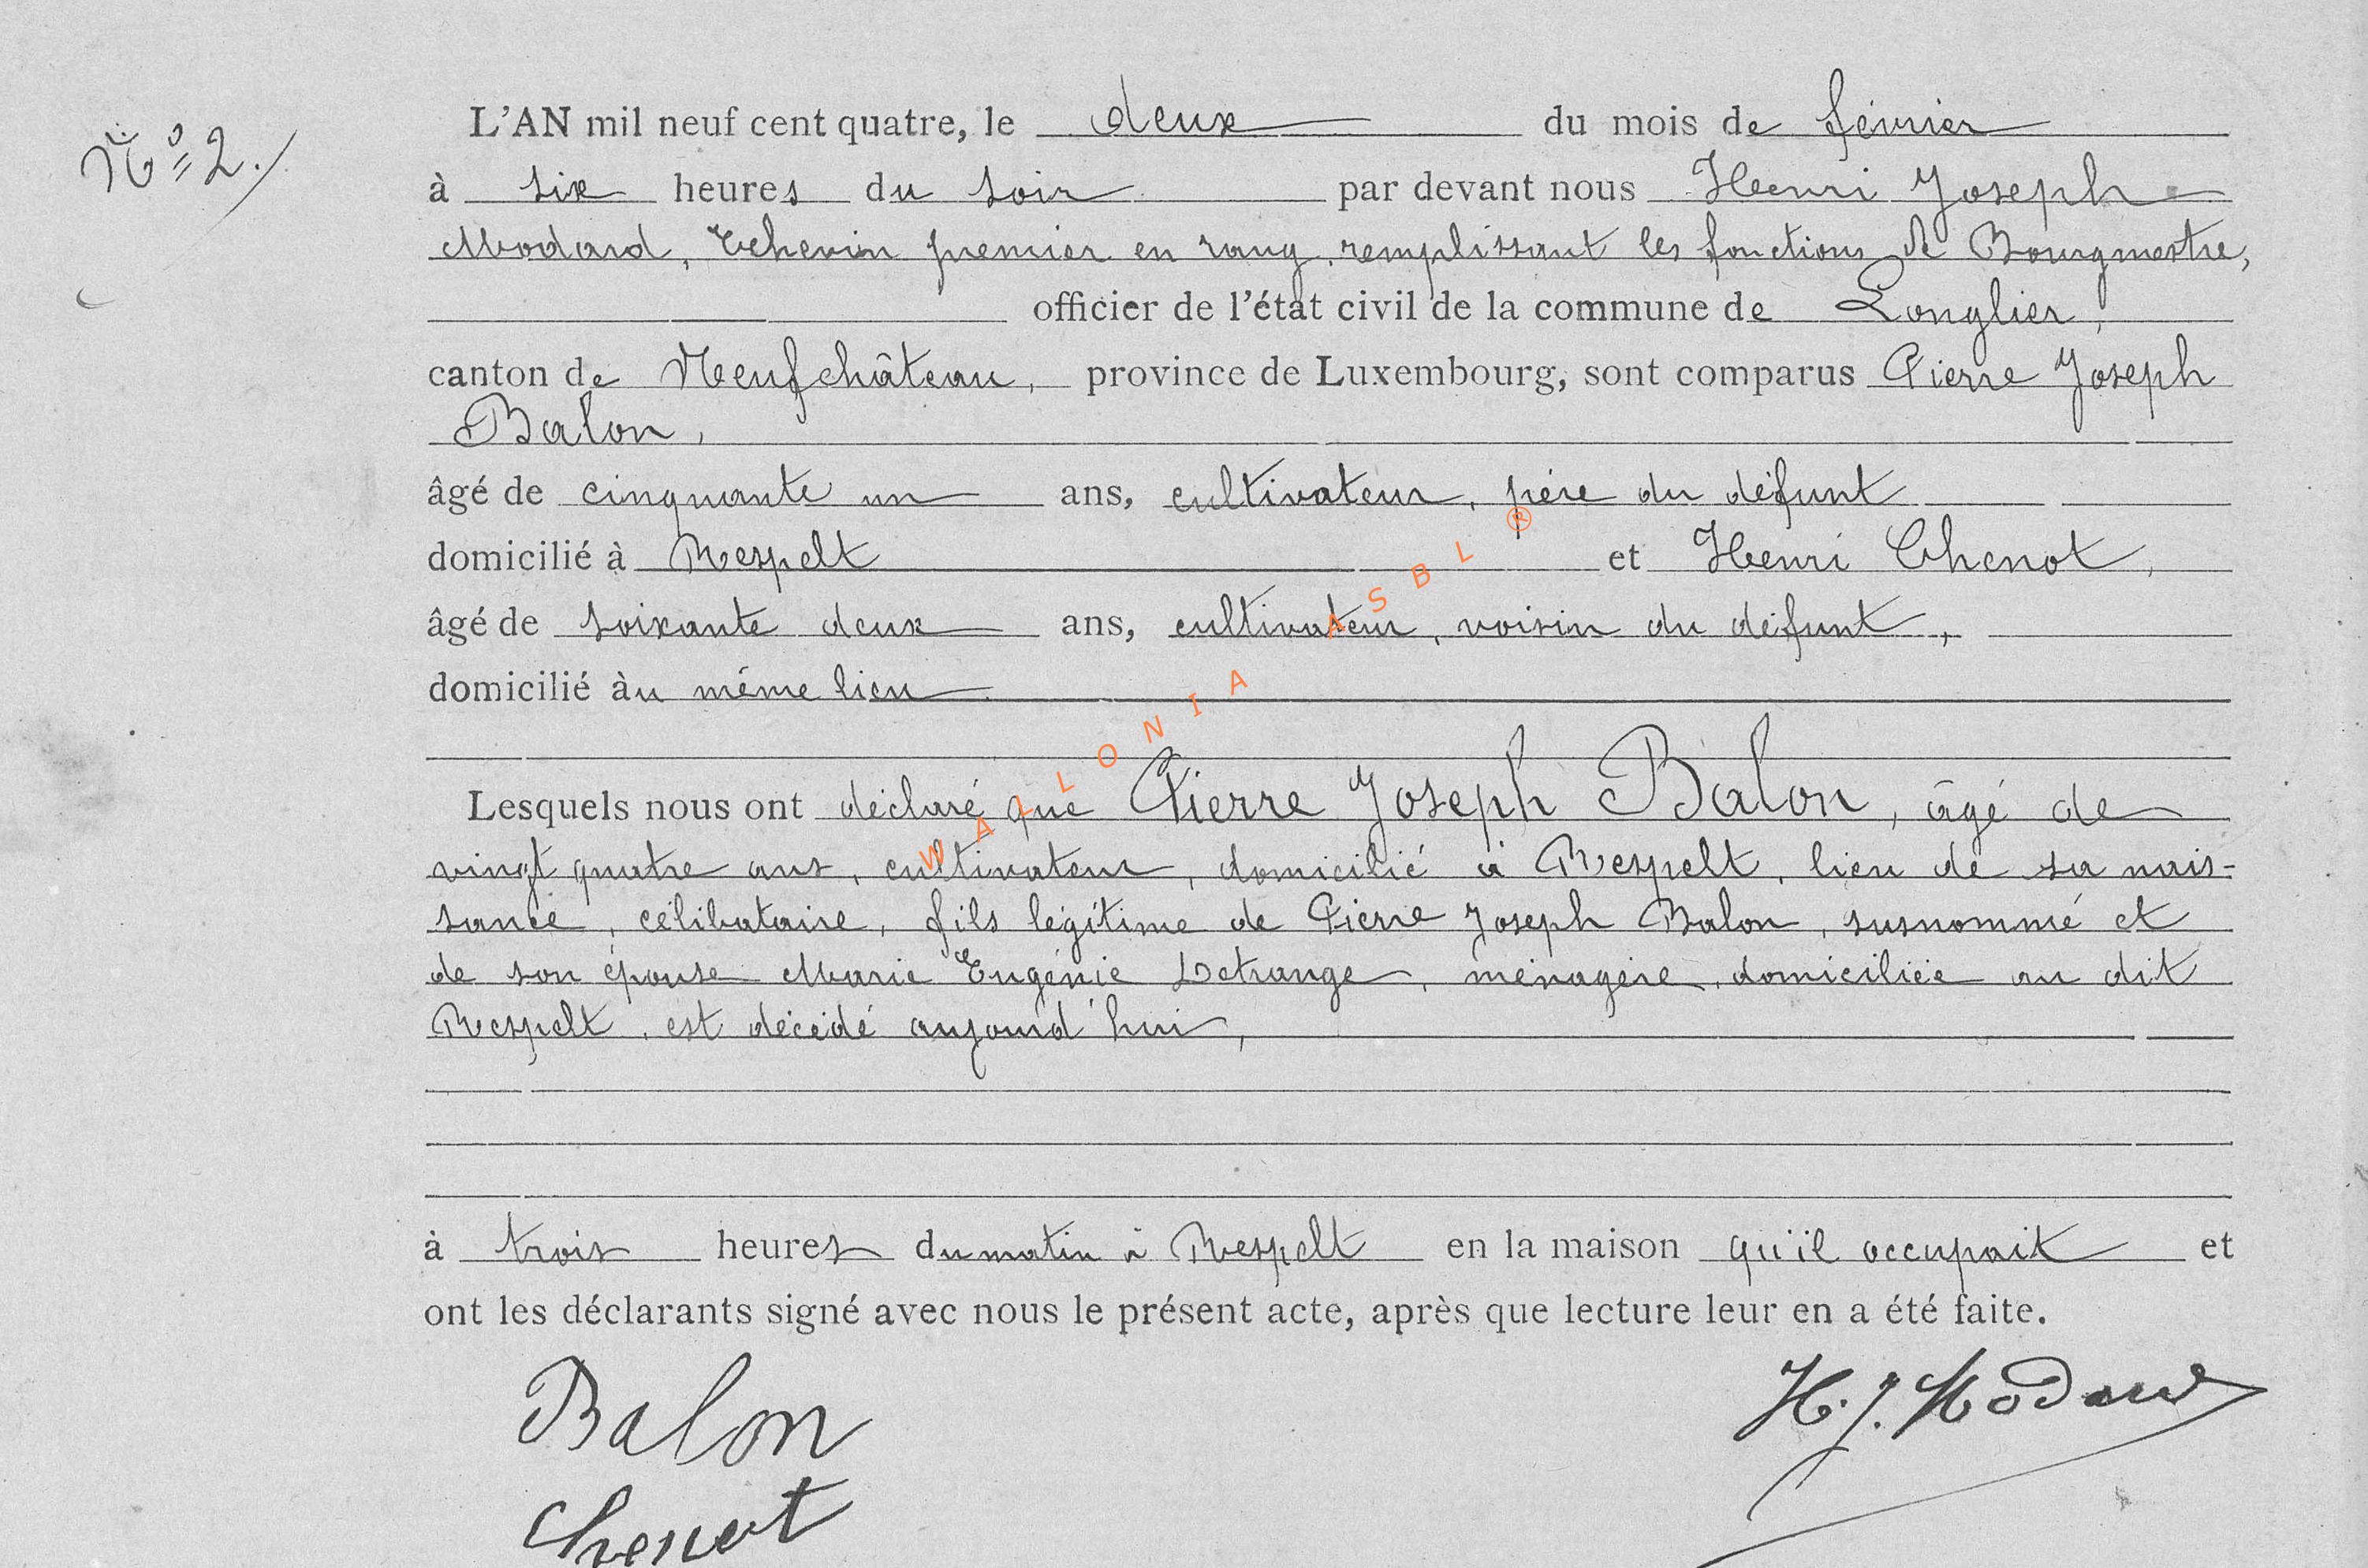 N° 2.
L'AN mil neuf cent quatre, le deux du mois de février
à six heures du soir par devant nous Henri Joseph
Modard, Echevin premier en rang, remplissant les fonctions de Bourgmestre,
officier de l'état civil de la commune de Longlier,
canton de Neufchâteau, province de Luxembourg, sont comparus Pierre Joseph
Balon,
âgé de cinquante un ans, cultivateur, père du défunt
domicilié à Respelt et Henri Chenot,
âgé de soixante deux ans, cultivateur, voisin du défunt,
domicilié àu même lieu.
Lesquels nous ont déclaré que Pierre Joseph Balon, âgé de
vingt quatre ans, cultivateur, domicilié à Respelt, lieu de sa nais-
sance, célibataire, fils légitime de Pierre Joseph Balon, susnommé et
de son épouse Marie Eugénie Detrange, ménagère, domiciliée au dit
Respelt, est décédé aujourd'hui,
à trois heures du matin à Respelt en la maison qu'il occupait et
ont les déclarants signé avec nous le présent acte, après que lecture leur en a été faite.
Balon
H. J. Modard
Chenot
WALLONIA ASBL ®